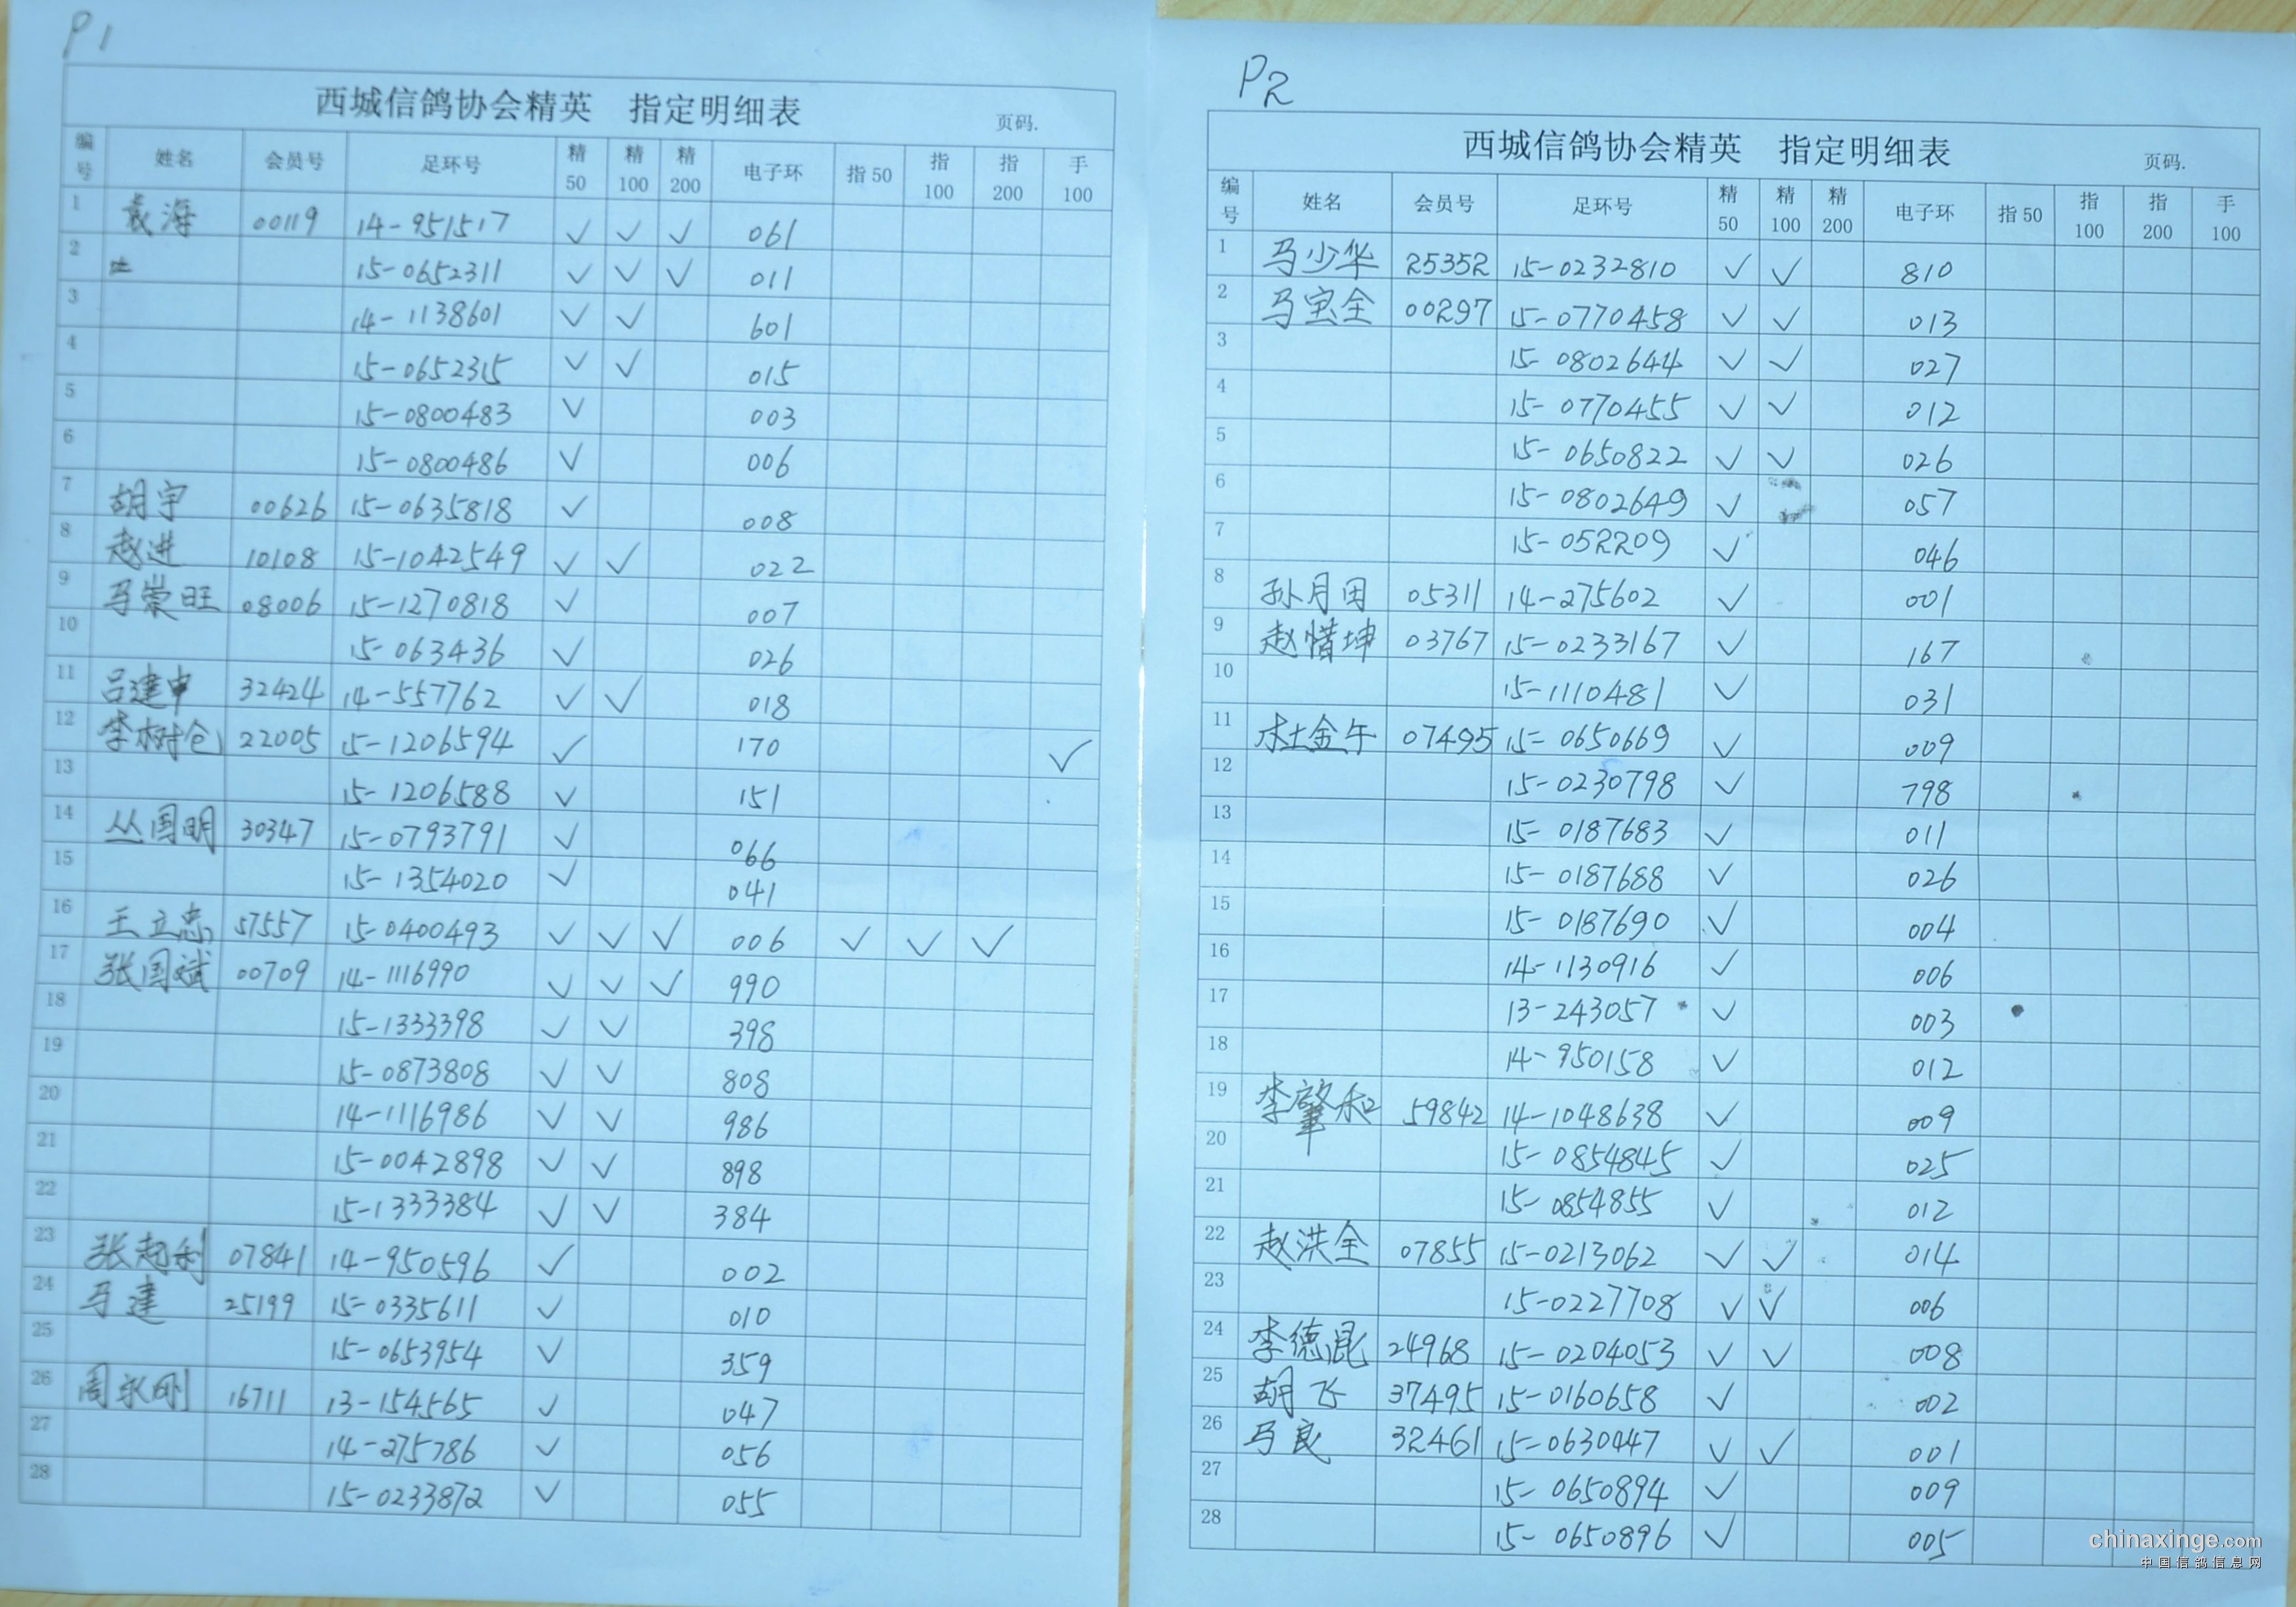 P1
西城信鸽协会精英 指定明细表 页码.
编号 姓名 会员号 足环号 精50 精100 精200 电子环 指50 指100 指200 手100
1 海 00119 14-951517 ✓ ✓ ✓ 061
2 15-0652311 ✓ ✓ ✓ 011
3 14-1138601 ✓ ✓ 601
4 15-0652315 ✓ ✓ 015
5 15-0800483 ✓ 003
6 15-0800486 ✓ 006
7 胡宇 00626 15-0635818 ✓ 008
8 赵进 10108 15-1042549 ✓ ✓ 022
9 马崇旺 08006 15-1270818 ✓ 007
10 15-063436 ✓ 026
11 吕建中 32424 14-557762 ✓ ✓ 018
12 李树仓 22005 15-1206594 ✓ 170 ✓
13 15-1206588 ✓ 151
14 丛国明 30347 15-0793791 ✓ 066
15 15-1354020 ✓ 041
16 王立忠 57557 15-0400493 ✓ ✓ ✓ 006 ✓ ✓ ✓
17 张国斌 00709 14-1116990 ✓ ✓ ✓ 990
18 15-1333398 ✓ ✓ 398
19 15-0873808 ✓ ✓ 808
20 14-1116986 ✓ ✓ 986
21 15-0042898 ✓ ✓ 898
22 15-1333384 ✓ ✓ 384
23 张起利 07841 14-950596 ✓ 002
24 马建 25199 15-0335611 ✓ 010
25 15-0653954 ✓ 359
26 周永刚 16711 13-154565 ✓ 047
27 14-275786 ✓ 056
28 15-0233872 ✓ 055
P2
西城信鸽协会精英 指定明细表 页码.
编号 姓名 会员号 足环号 精50 精100 精200 电子环 指50 指100 指200 手100
1 马少华 25352 15-0232810 ✓ ✓ 810
2 马宝全 00297 15-0770458 ✓ ✓ 013
3 15-0802644 ✓ ✓ 027
4 15-0770455 ✓ ✓ 012
5 15-0650822 ✓ ✓ 026
6 15-0802649 ✓ 057
7 15-052209 ✓ 046
8 孙月田 05311 14-275602 ✓ 001
9 赵惜坤 03767 15-0233167 ✓ 167
10 15-1110481 ✓ 031
11 杜金午 07495 15-0650669 ✓ 009
12 15-0230798 ✓ 798
13 15-0187683 ✓ 011
14 15-0187688 ✓ 026
15 15-0187690 ✓ 004
16 14-1130916 ✓ 006
17 13-243057 ✓ 003
18 14-950158 ✓ 012
19 李肇和 59842 14-1048638 ✓ 009
20 15-0854845 ✓ 025
21 15-0854855 ✓ 012
22 赵洪全 07855 15-0213062 ✓ ✓ 014
23 15-0227708 ✓ ✓ 006
24 李德混 24968 15-0204053 ✓ ✓ 008
25 胡飞 37495 15-0160658 ✓ 002
26 马良 32461 15-0630447 ✓ ✓ 001
27 15-0650894 ✓ 009
28 15-0650896 ✓ 005
chinaxinge.com
中国信鸽信息网